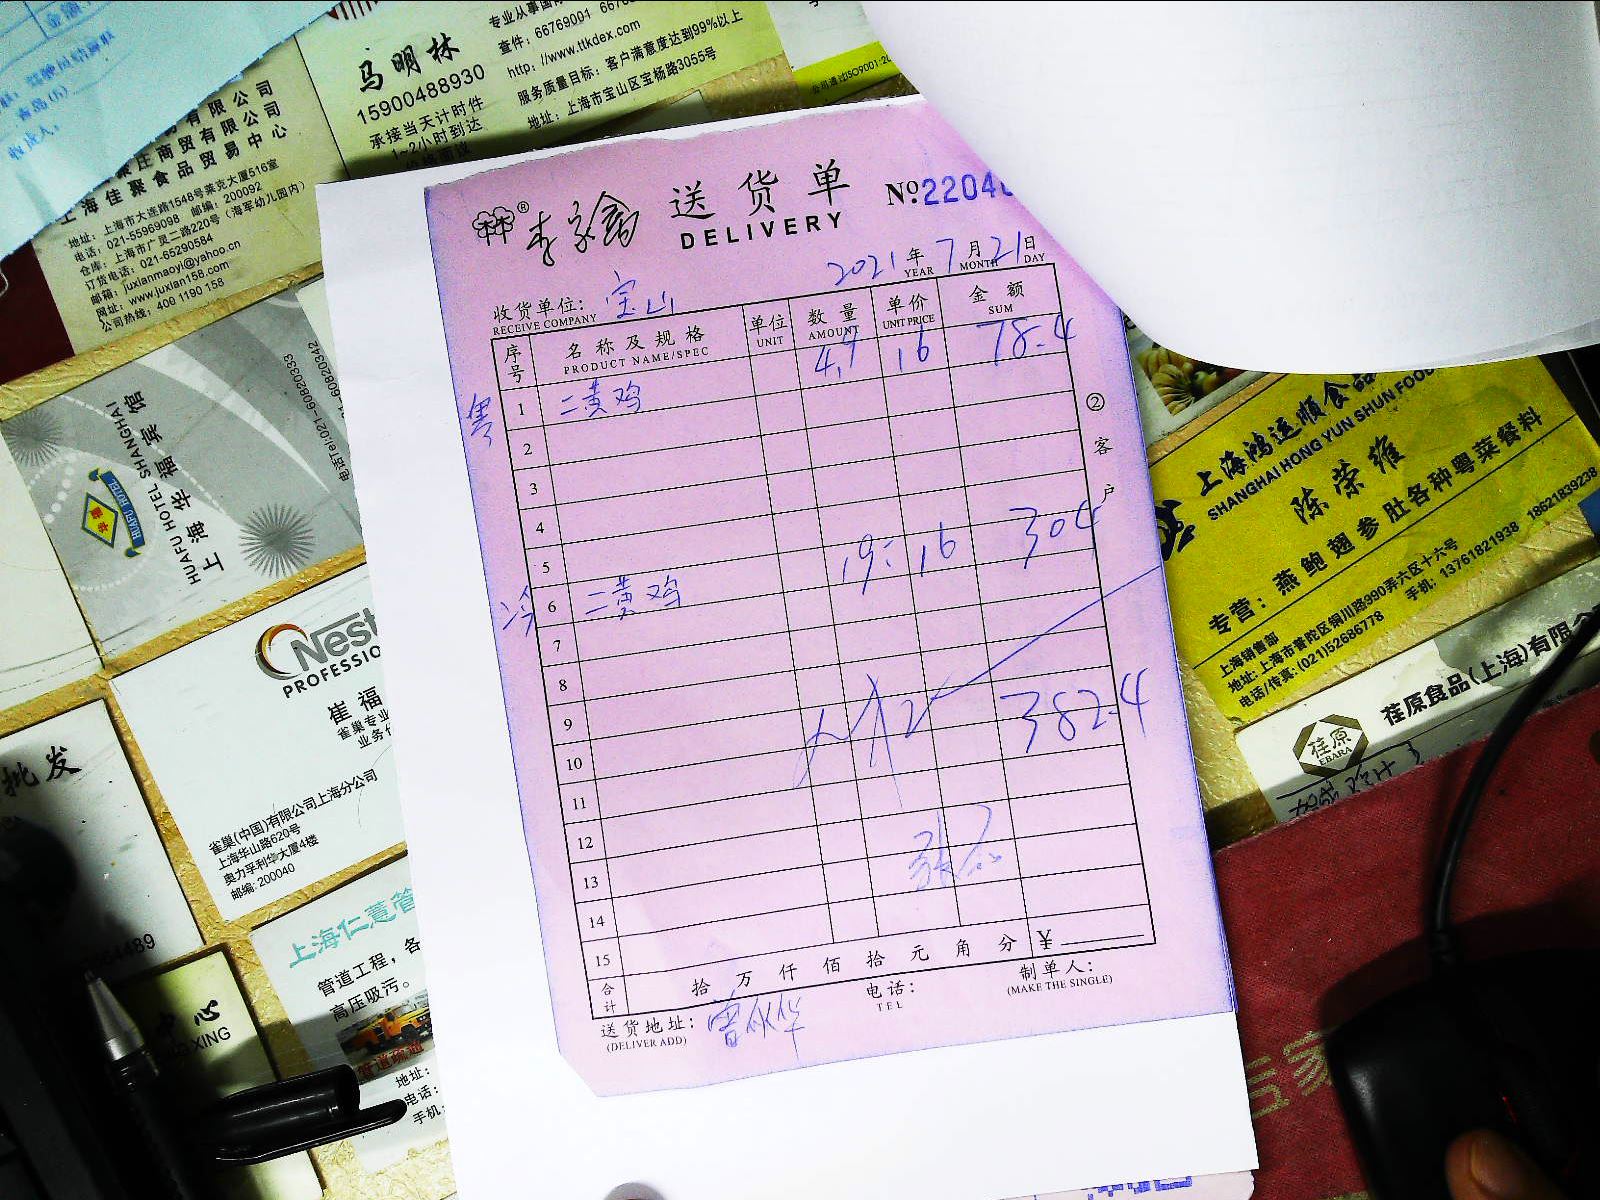 马明林
15900488930
承接当天计时件
1~2小时到达
专业从事国
查件: 66769001
http://www.ttkdex.com
服务质量目标: 客户满意度达到99%以上
地址: 上海市宝山区宝杨路3055号
公司通过ISO9001:20
易有限公司
聚庄商贸有限公司
上海佳聚食品贸易中心
地址: 上海市大连路1548号莱克大厦516室
电话: 021-55969098 邮编: 200092
仓库: 上海市广灵二路220号 (海军幼儿园内)
订货电话: 021-65290584
邮箱: juxianmaoyi@yahoo.cn
网址: www.juxian158.com
公司热线: 400 1190 158
李家禽 ® 送货单 №22046
DELIVERY
2021年7月21日
YEAR MONTH DAY
收货单位: 宝山
RECEIVE COMPANY
序号 名称及规格 单位 数量 单价 金额
PRODUCT NAME/SPEC UNIT AMOUNT UNIT PRICE SUM
粤 1 二黄鸡 4.9 16 78.4
2
3
4
5
冷 6 二黄鸡 19: 16 304
7
8
9
10 382.4
11
12
13
14
15
合计 拾万仟佰拾元角分 ¥
送货地址: 曾
(DELIVER ADD)
电话:
TEL
制单人:
(MAKE THE SINGLE)
② 客户
HUAFU HOTEL
HUAFU HOTEL SHANGHAI
上海华福宾馆
电话Tel:021-60820333
021-60820342
Nest
PROFESSIO
崔福
雀巢专业
雀巢(中国)有限公司上海分公司
上海华山路620号
奥力孚利华大厦4楼
邮编: 200040
批发
上海仁薏管
管道工程, 各
高压吸污。
管道疏通
地址:
电话:
手机:
中心
XING
上海鸿运顺食品
SHANGHAI HONG YUN SHUN FOOD
陈荣维
专营: 燕鲍翅参肚各种粤菜餐料
上海销售部
地址: 上海市普陀区铜川路990弄六区十六号
电话/传真: (021)52686778 手机: 13761821938 18621839238
荏原
EBARA
荏原食品(上海)有限公